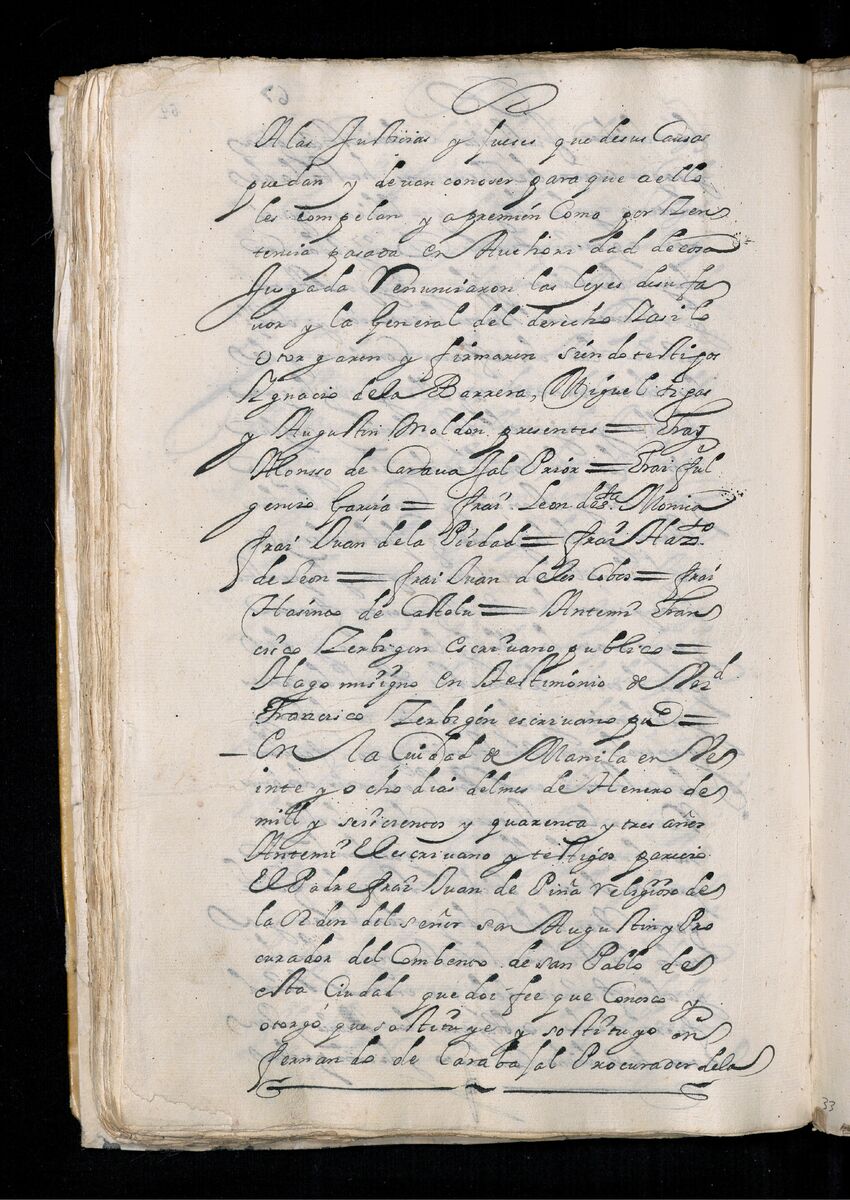 A las Justicias y Jueses que desus Causas
puedan y devan conoser para que a ello
les compelan y apremien Como por Zen
tencia pasada en Authori dad de cosa
Jusgada Renunciaron las leyes desu fa
vor y la General del derecho Zasi lo
otorgaron y firmaron siendo testigos
Ygnacio dela Barrera, Miguel
y Augustin Roldon presentes = Fray
Alonsso de Carava Jal Prior = Frai Ful
gencio Garçia = frai Leon de Sta Monica
frai Juan dela Piedad = frai
de Leon = frai Juan delos Cobos = frai
Hasinto de = Antemi Fran
cisco Zerbigon escrivano publico =
Hago misigno en testimonio de Verd
Francisco Zerbigón escrivano puco =
En la Ciudad de Manila en Ve
inte y ocho dias delmes de Henero de
mill y seiscientos y quarenta y tres años
Antemi El escrivano y testigos parecio
El Padre frai Juan de Piña religioso de
la Orden del señor san Augustin y Pro
curador del Combento de san Pablo de
esta Ciudad que doi fee que Conosco y
otorgó que sostituye y sostituyo en
fernando de Caraba Jal Procurador dela
33